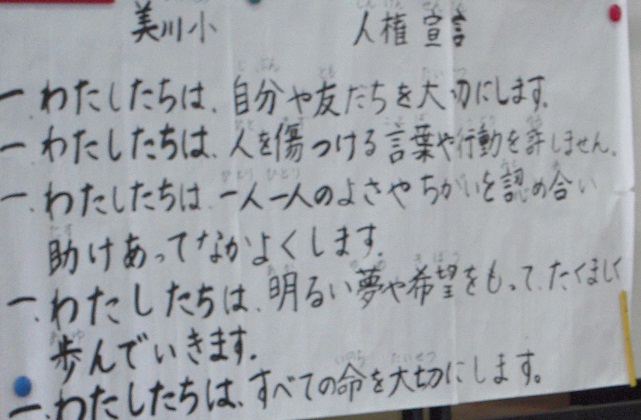 美川小 人権宣言
一、わたしたちは、自分や友だちを大切にします。
一、わたしたちは、人を傷つける言葉や行動を許しません。
一、わたしたちは、一人一人のよさやちがいを認め合い
助けあってなかよくします。
一、わたしたちは、明るい夢や希望をもって、たくましく
歩んでいきます。
一、わたしたちは、すべての命を大切にします。